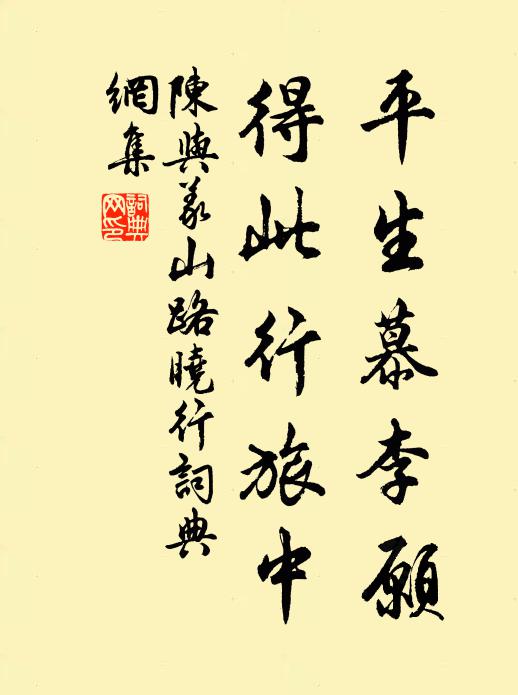 平生慕李愿
得此行旅中
陳與義山路曉行詞典
網集
詞典
网印